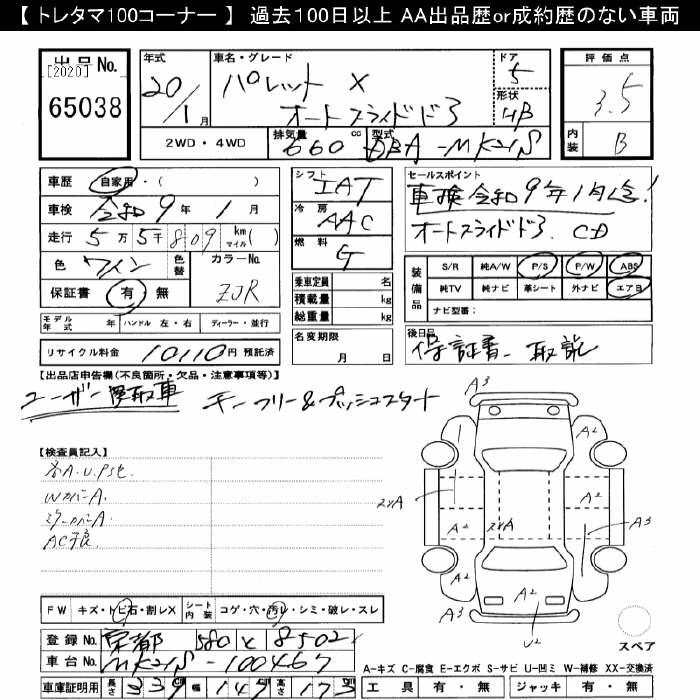 【 トレタマ100コーナー 】 過去100日以上 AA出品歴or成約歴のない車両
出品No.
[2020]
65038
年式
20/1月
車名・グレード
パレット X
オートスライドドア
ドア
5
形状
HB
評価点
3.5
内装
B
2WD・4WD
排気量
660
cc
型式
DBA-MK21S
車歴
自家用・( )
車検
令和9年1月
走行
5万5千809
km
マイル
( )
色
ワイン
色替
カラーNo.
ZJR
保証書
有・無
シフト
IAT
冷房
AAC
燃料
G
乗車定員
名
積載量
kg
総重量
kg
セールスポイント
車検令和9年1月迄!
オートスライドドア. CD
装備品
S/R
純A/W
P/S
P/W
ABS
純TV
純ナビ
革シート
外ナビ
エアB
ナビ型番:
モデル年式
年
ハンドル
左・右
ディーラー・並行
名変期限
月 日
後日品
保証書. 取説
リサイクル料金
10110円
預託済
【出品店申告欄(不良箇所・欠品・注意事項等)】
ユーザー買取車 キーフリー&プッシュスタート
【検査員記入】
各A.U.Psセ.
Wカバー A.
ミラーカバー A.
AC不良.
A3
A2
A2
A2
A2
A3
A2
A2
A3
U2
スペア
FW
キズ・トビ石・割レX
シート内装
コゲ・穴・汚レ・シミ・破レ・スレ
登録No.
京都 580 と 8502
車台No.
MK21S-100467
車庫証明用
長さ
339
幅
147
高さ
173
A-キズ C-腐食 E-エクボ S-サビ U-凹ミ W-補修 XX-交換済
工具
有・無
ジャッキ
有・無